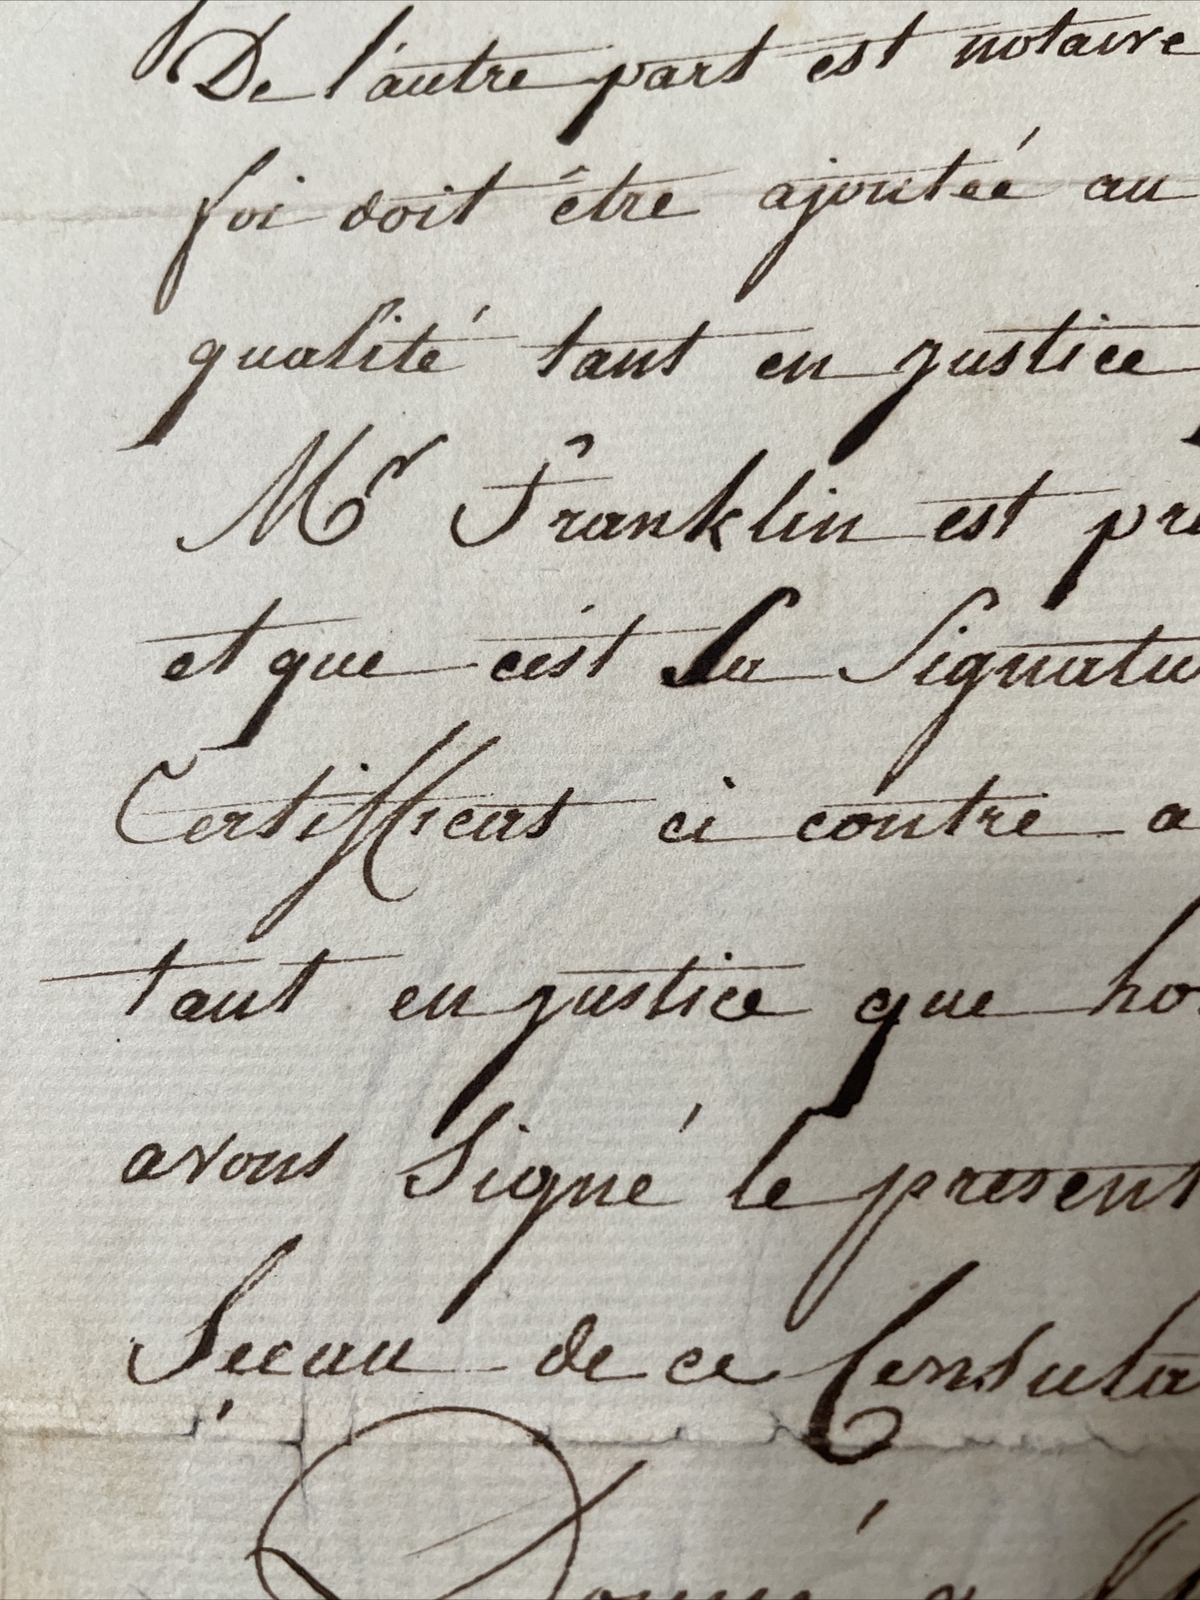 De l'autre part est notaire
foi doit être ajoutéé au
qualité tant en justice
Mr Franklin est pre
et que c'est sa Signatu
Certifficat ci contre a
tant en justice que ho
avons Signé le present
Sceau de ce Consula
Donné a